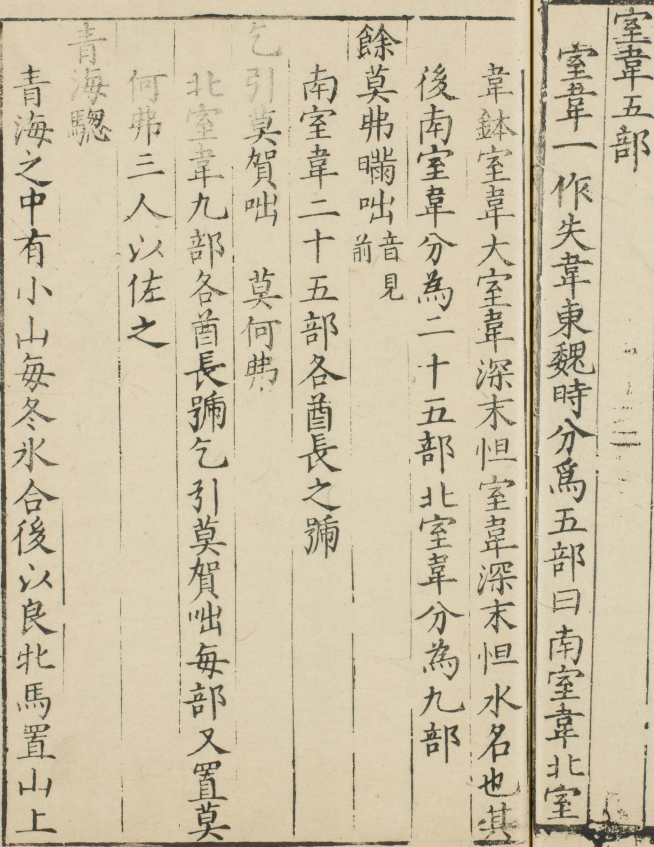 室韋五部
室韋一作失韋東魏時分爲五部曰南室韋北室
韋鉢室韋大室韋深末怛室韋深末怛水名也其
後南室韋分為二十五部北室韋分為九部
餘莫弗瞞咄音見前
南室韋二十五部各酋長之號
乞引莫賀咄　莫何弗
北室韋九部各酋長號乞引莫賀咄每部又置莫
何弗三人以佐之
青海驄
青海之中有小山每冬氷合後以良牝馬置山上